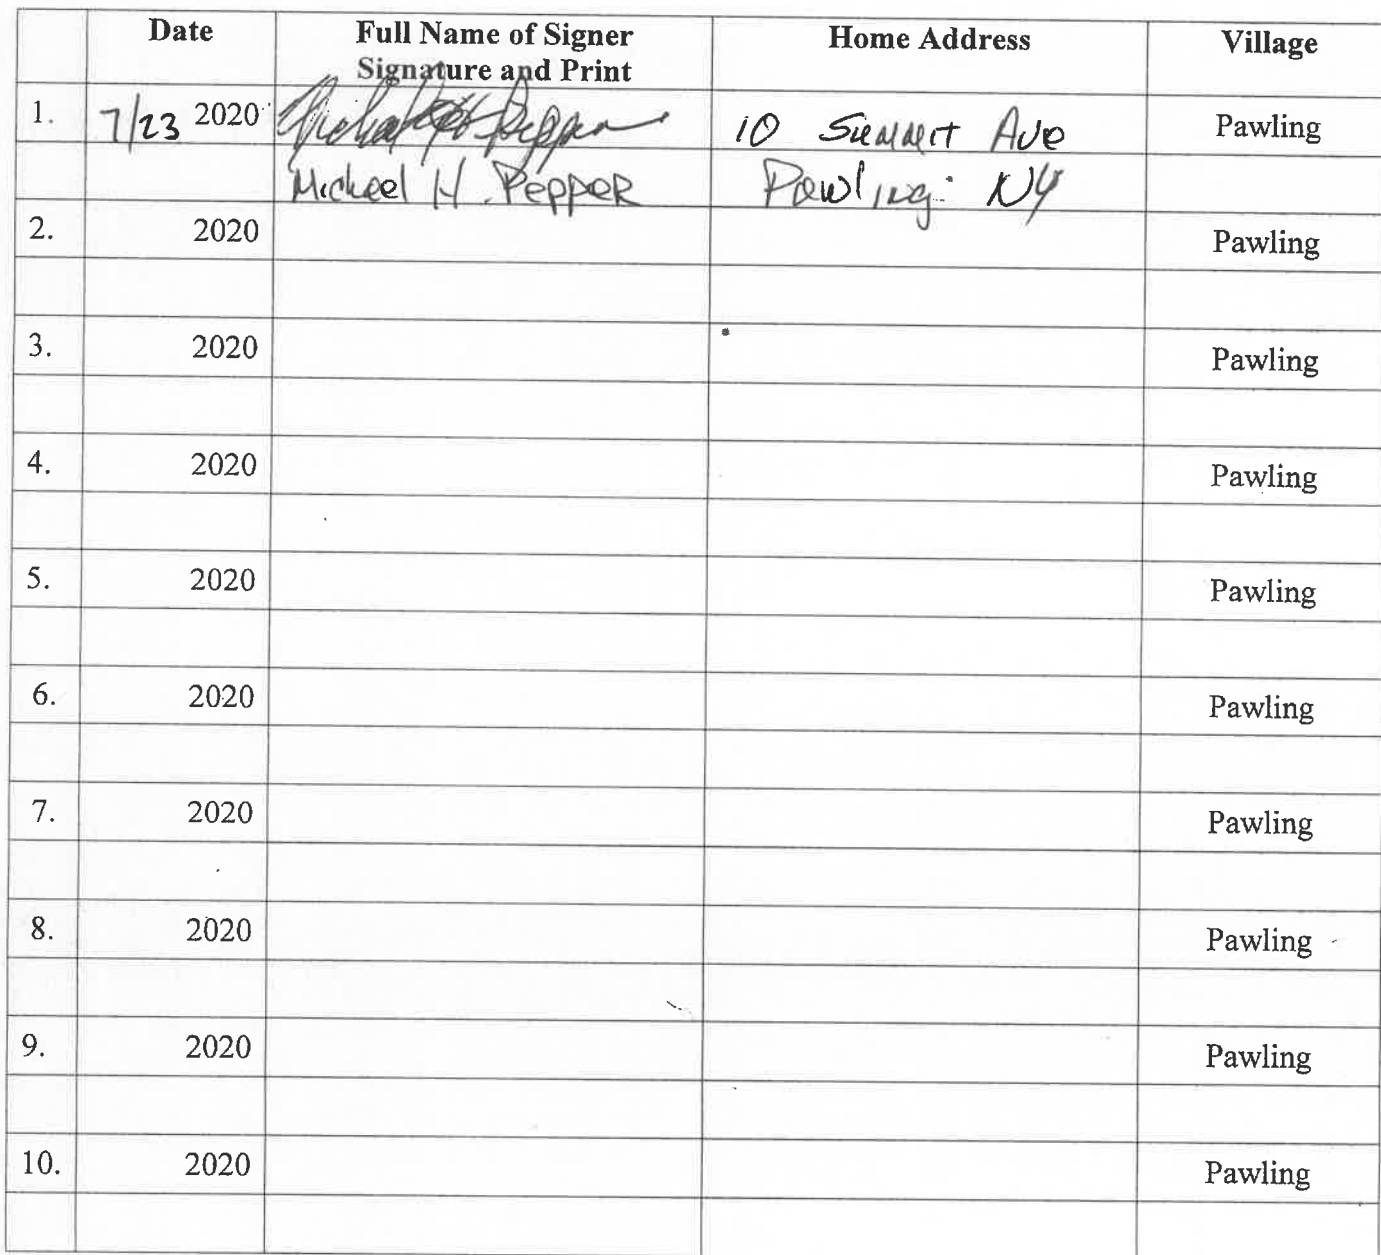 Date Full Name of Signer Home Address Village
Signature and Print
1. 7/23 2020 Michael H Pepper 10 Summit Ave Pawling
Michael H. Pepper Pawling NY
2. 2020 Pawling
3. 2020 Pawling
4. 2020 Pawling
5. 2020 Pawling
6. 2020 Pawling
7. 2020 Pawling
8. 2020 Pawling
9. 2020 Pawling
10. 2020 Pawling